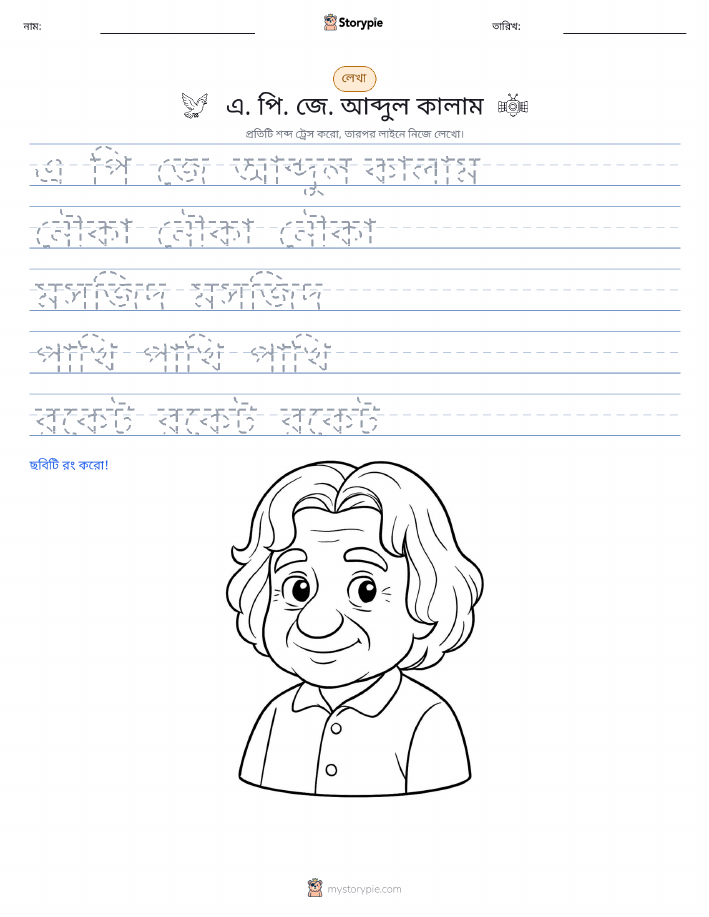 নাম:
Storypie
তারিখ:
লেখা
এ. পি. জে. আব্দুল কালাম
প্রতিটি শব্দ ট্রেস করো, তারপর লাইনে নিজে লেখো।
এ পি জে আব্দুল কালাম
নৌকা নৌকা নৌকা
মসজিদ মসজিদ
পাখি পাখি পাখি
রকেট রকেট রকেট
ছবিটি রং করো!
mystorypie.com